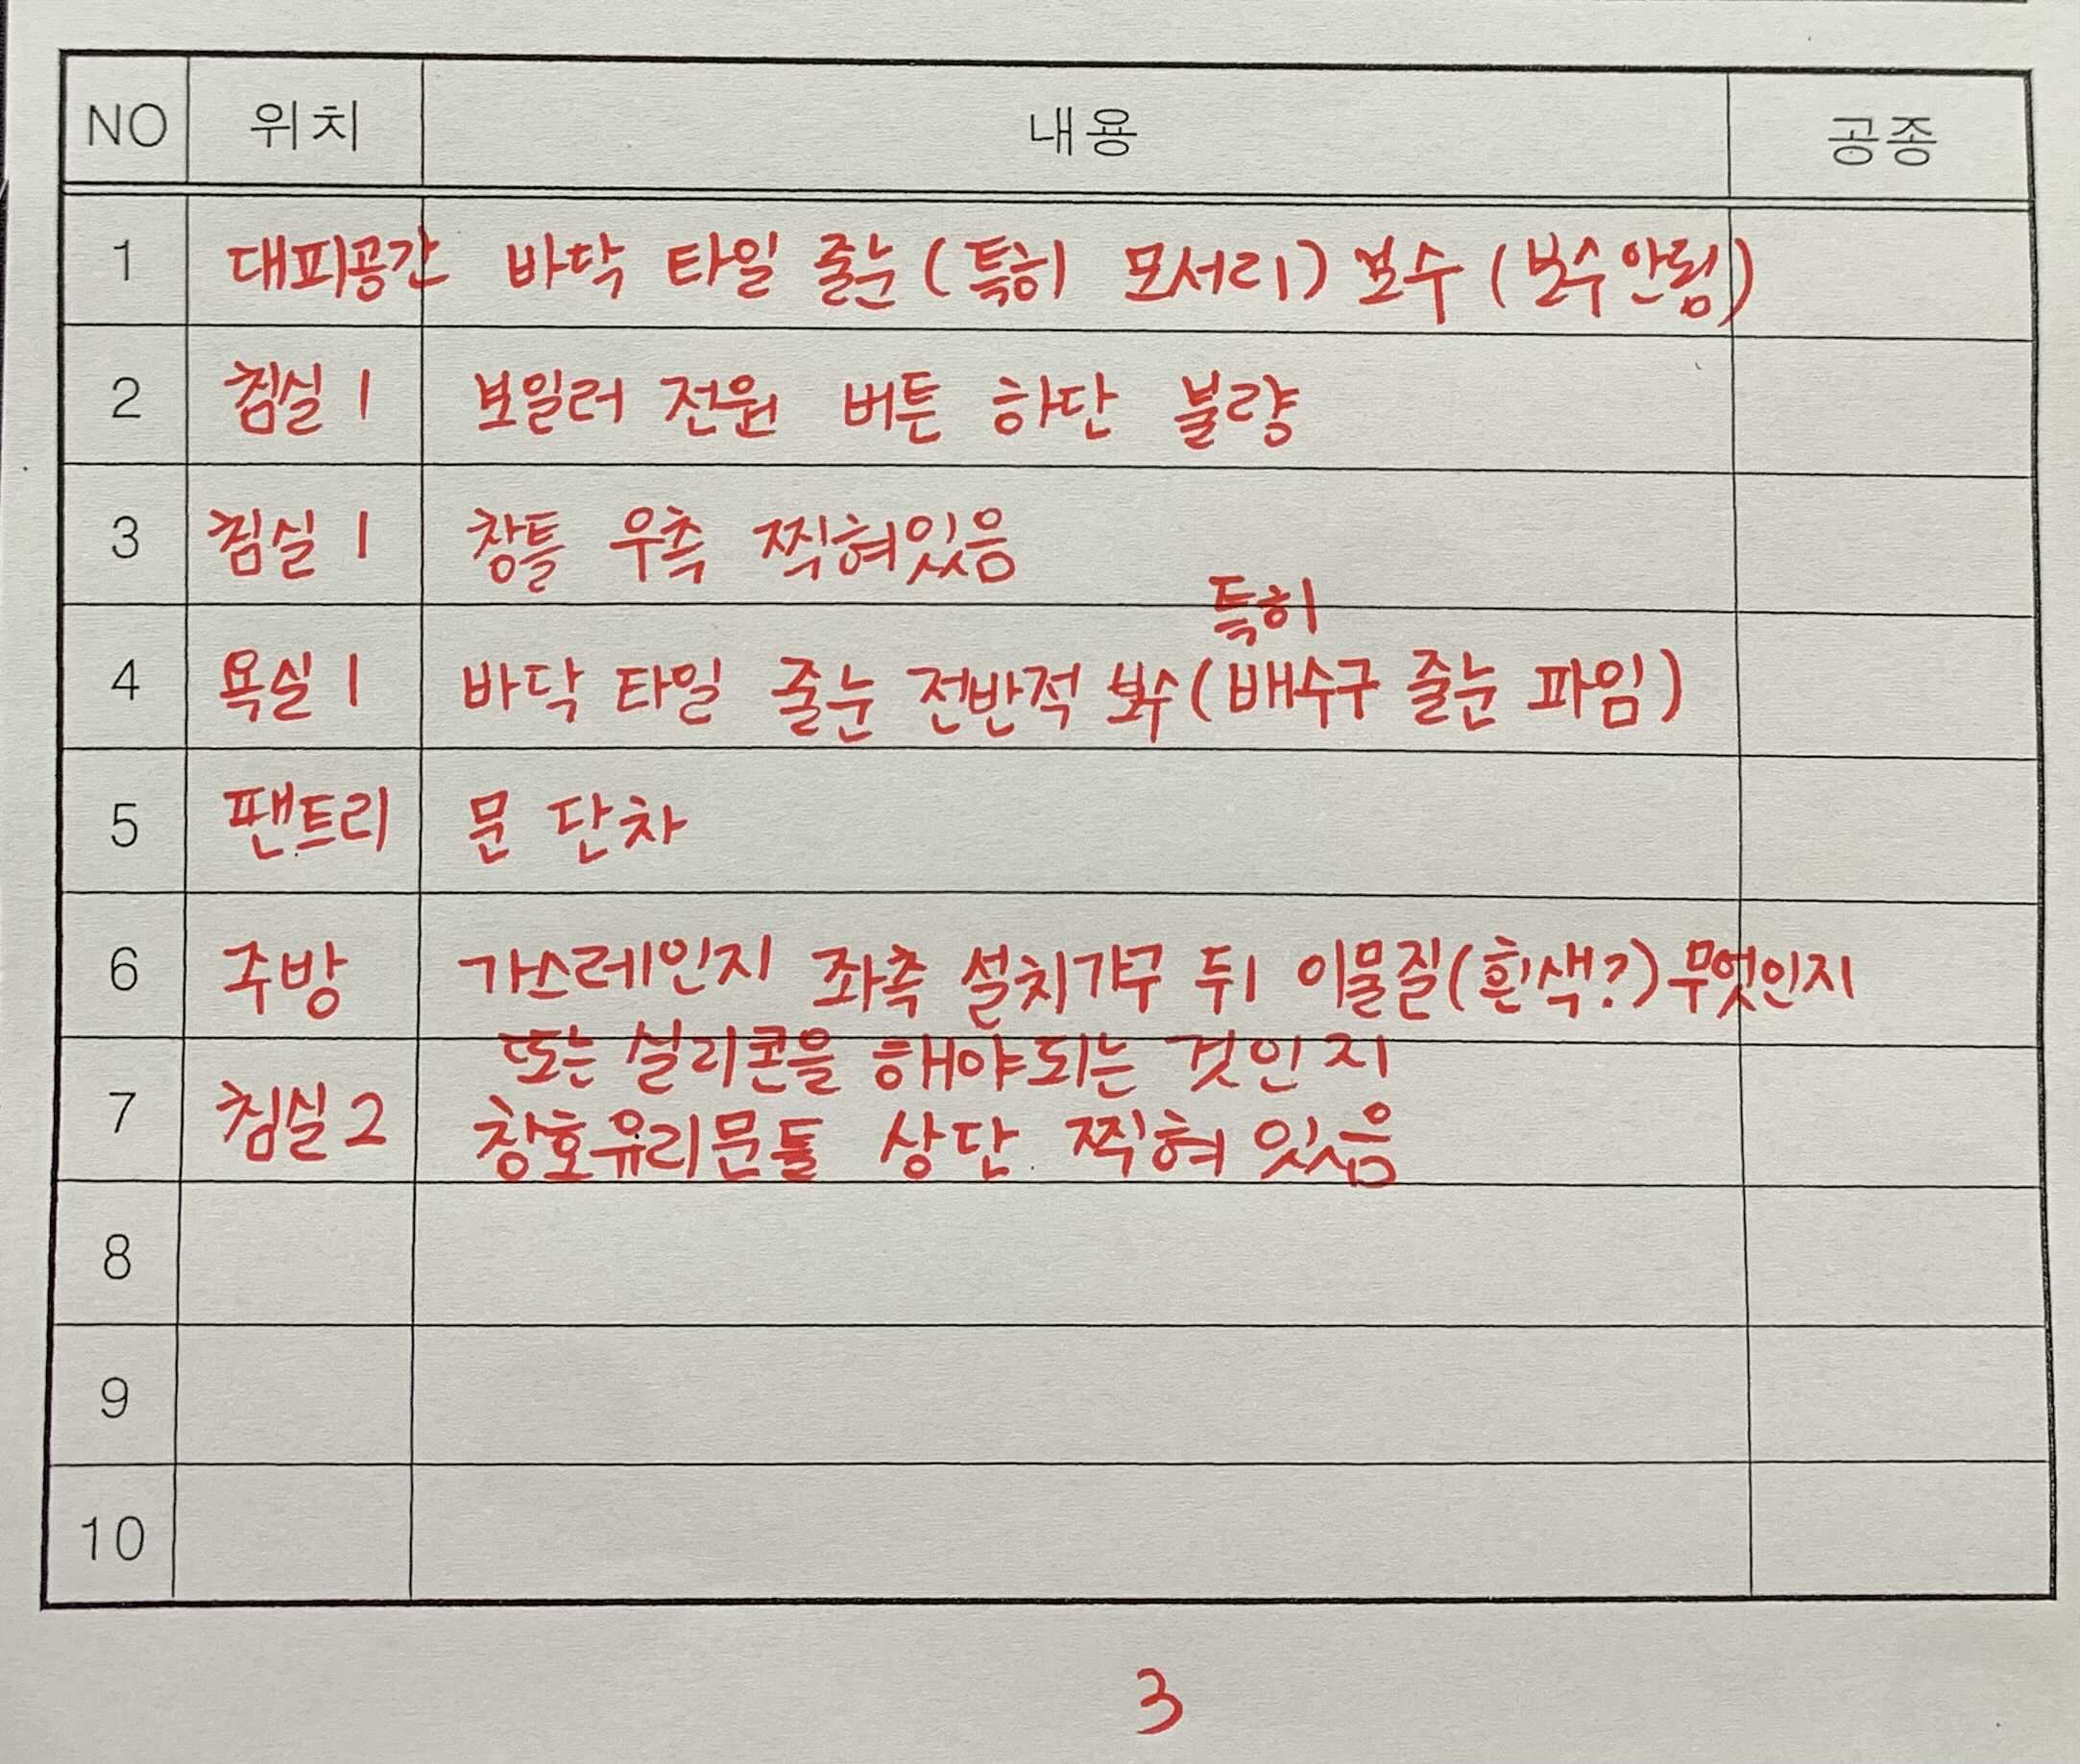 NO 위치 내용 공종
1 대피공간 바닥 타일 줄눈 (특히 모서리) 보수 (보수안됨)
2 침실 1 보일러 전원 버튼 하단 불량
3 침실 1 창틀 우측 찍혀있음
특히
4 욕실 1 바닥 타일 줄눈 전반적 보수 (배수구 줄눈 파임)
5 팬트리 문 단차
6 주방 가스레인지 좌측 설치가구 뒤 이물질(흰색?) 무엇인지
또는 실리콘을 해야되는 것인지
7 침실 2 창호유리문틀 상단 찍혀 있음
8
9
10
3